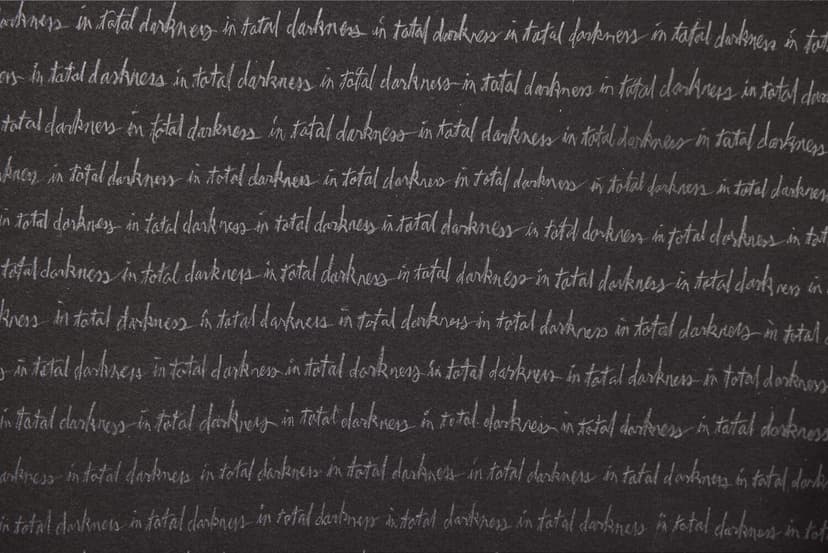 darkness in total darkness in total darkness in total darkness in total darkness in total darkness in tot
ess in total darkness in total darkness in total darkness in total darkness in total darkness in total dar
total darkness in total darkness in total darkness in total darkness in total darkness in total darkness
kness in total darkness in total darkness in total darkness in total darkness in total darkness in total darkness
in total darkness in total darkness in total darkness in total darkness in total darkness in total darkness in tot
total darkness in total darkness in total darkness in total darkness in total darkness in total darkness in
kness in total darkness in total darkness in total darkness in total darkness in total darkness in total
s in total darkness in total darkness in total darkness in total darkness in total darkness in total darkness
in total darkness in total darkness in total darkness in total darkness in total darkness in total darkness
arkness in total darkness in total darkness in total darkness in total darkness in total darkness in total dark
in total darkness in total darkness in total darkness in total darkness in total darkness in total darkness in tot